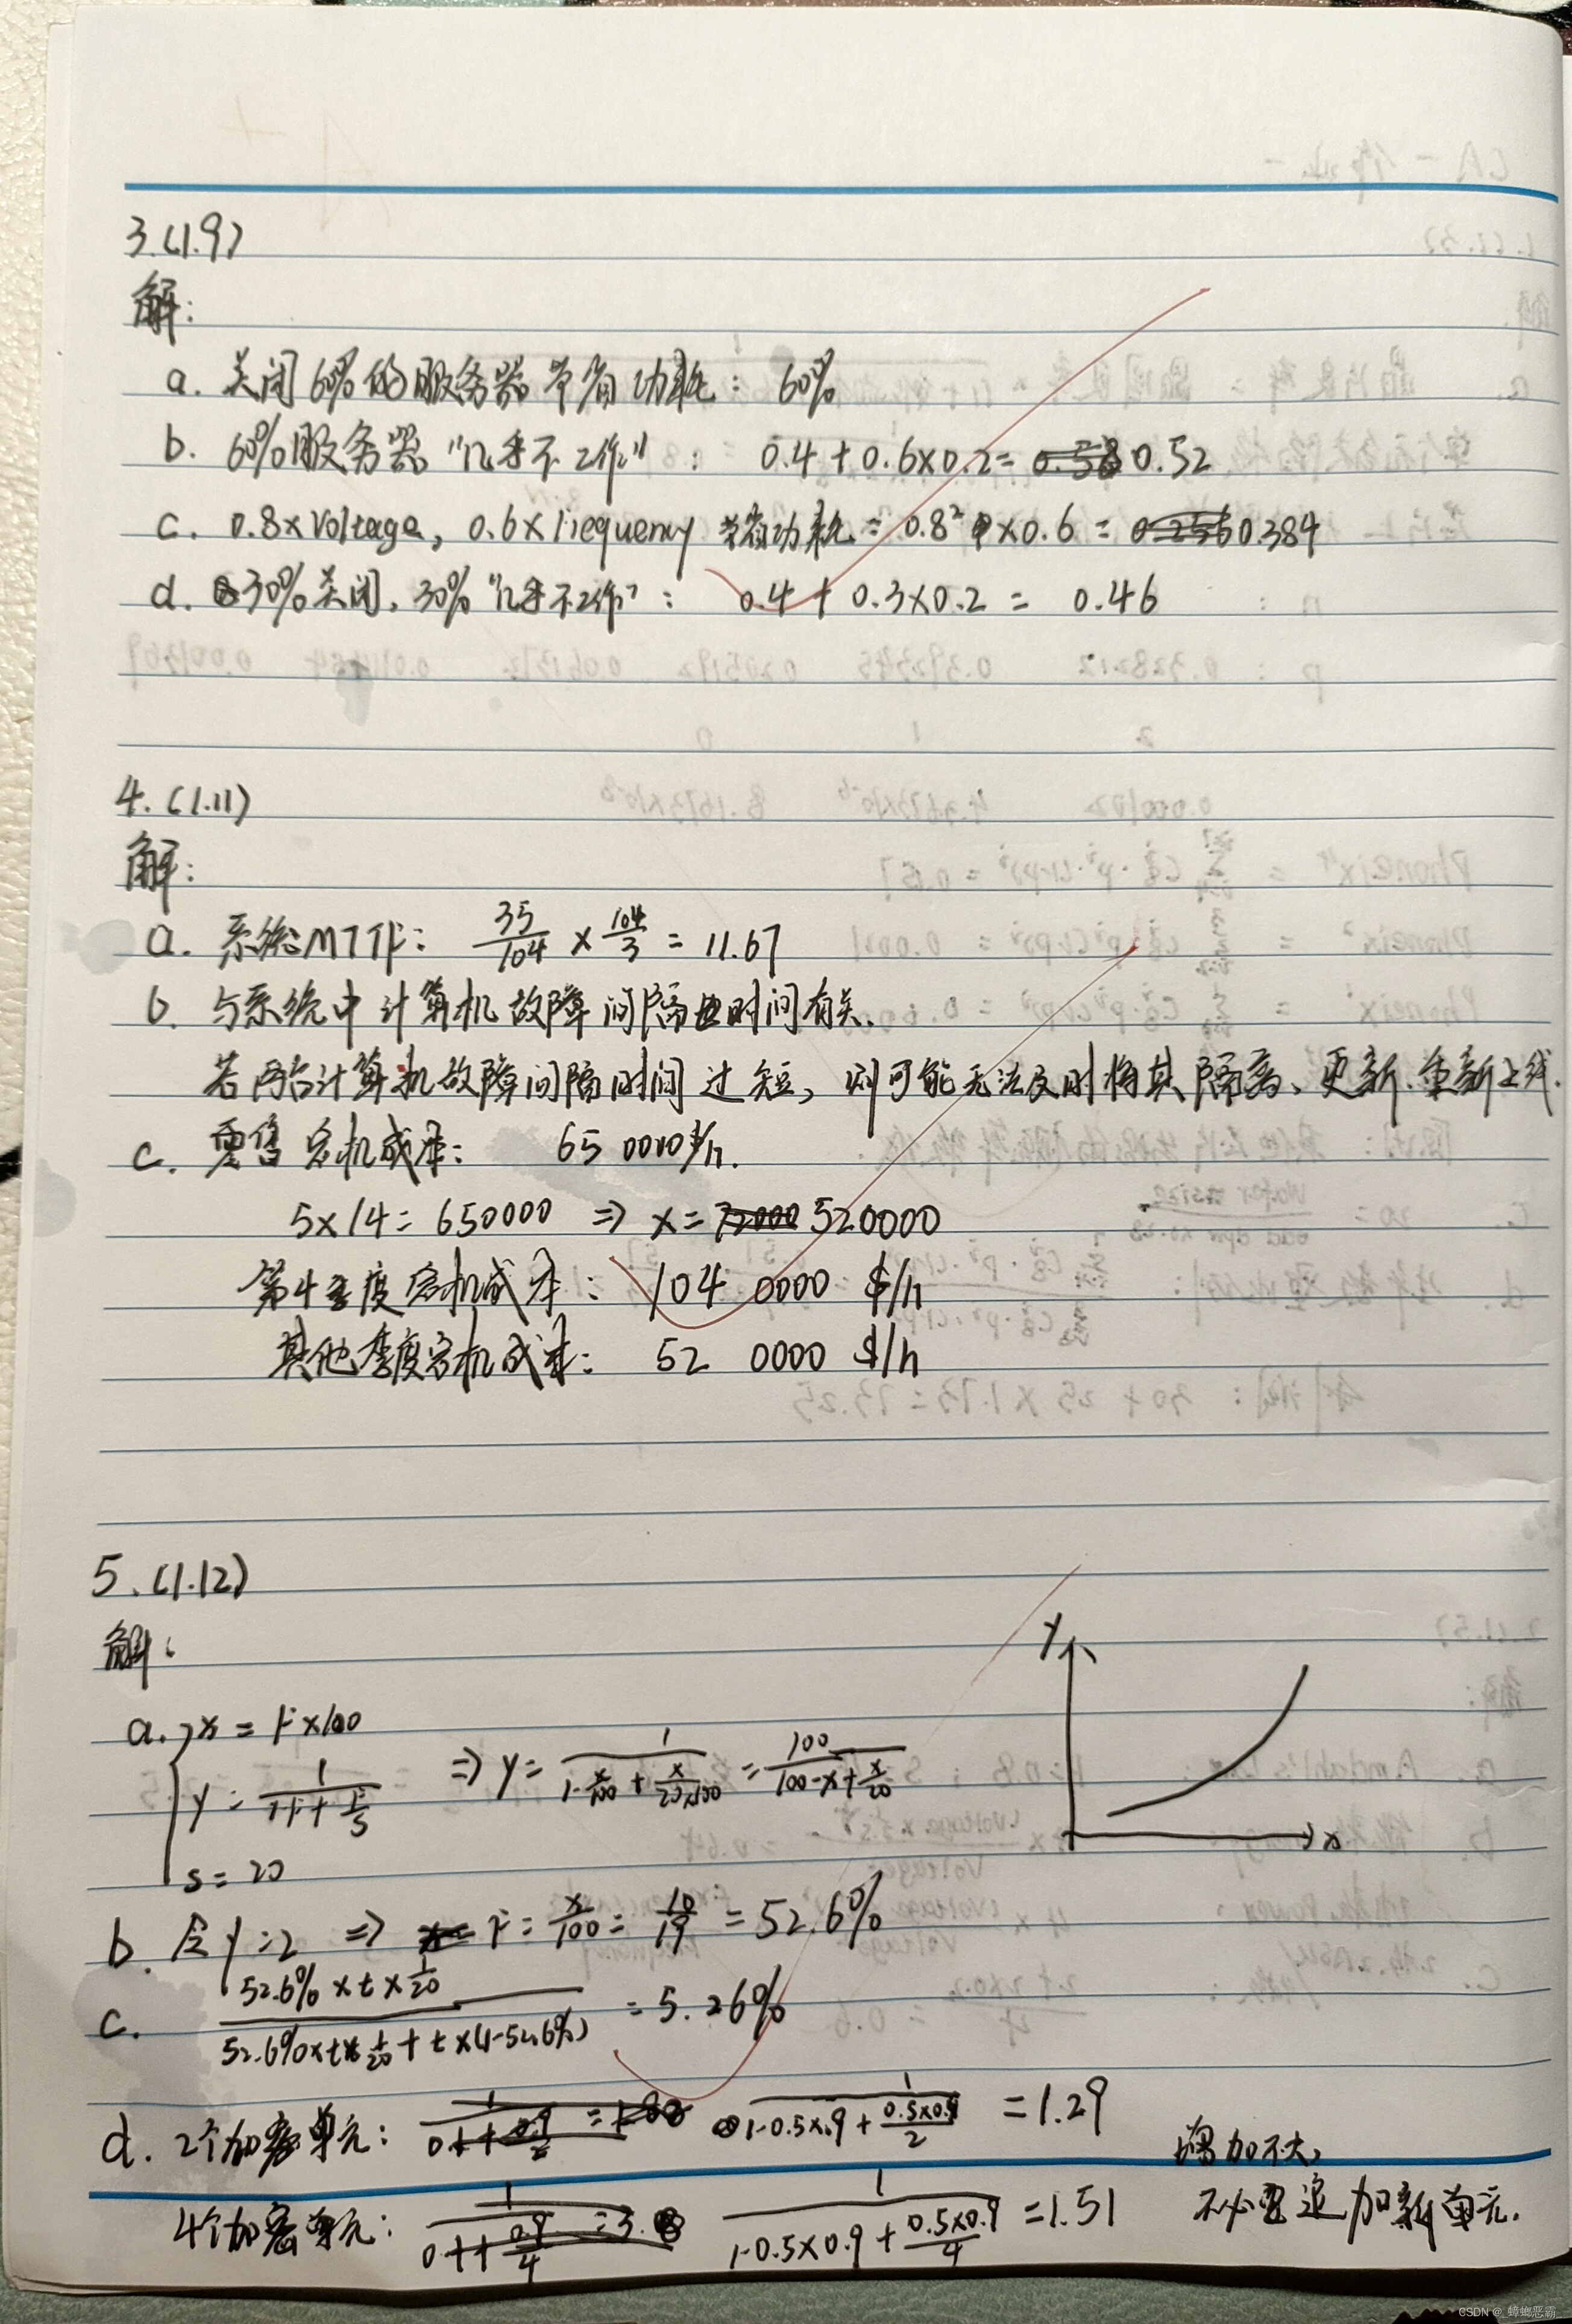 3.(1.9)
解:
a. 关闭60%的服务器节省功耗: 60%
b. 60%服务器"几乎不工作": 0.4+0.6×0.2= 0.52
c. 0.8×voltage, 0.6×frequency 节省功耗= 0.8²×0.6 = 0.384
d. 30%关闭, 30%"几乎不工作": 0.4+0.3×0.2 = 0.46
4.(1.11)
解:
a. 系统MTTF: 35/104 × 104/3 = 11.67
b. 与系统中计算机故障间隔时间有关.
若两台计算机故障间隔时间过短, 则可能无法及时将其隔离、更新、重新上线.
c. 零售宕机成本: 65 0000$/h.
5x/4= 650000 ⇒ x= 520000
第4季度宕机成本: 104 0000 $/h
其他季度宕机成本: 52 0000 $/h
5.(1.12)
解:
a. x = F×100
y = 1/(1-F+F/S) ⇒ y= 1/(1-x/100 + x/(20×100)) = 100/(100-x+x/20)
s=20
y
x
b. 令y=2 ⇒ F= x/100 = 10/19 = 52.6%
c. (52.6%×t×1/20)/(52.6%×t×1/20 + t×(1-52.6%)) = 5.26%
d. 2个加密单元: 1/(1-0.5×0.9+(0.5×0.9)/2) =1.29 增加不大,
4个加密单元: 1/(1-0.5×0.9+(0.5×0.9)/4) =1.51 不必要追加新单元.
CSDN @_蟑螂恶霸_